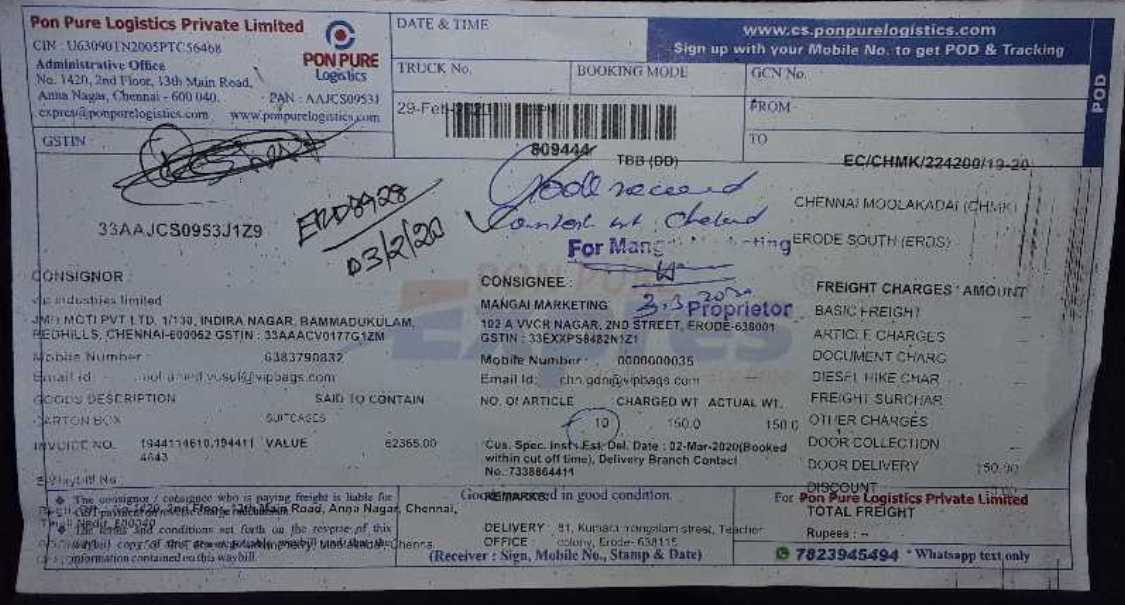 Pon Pure Logistics Private Limited
CIN : U63090TN2005PTC56468
Administrative Office
No. 1420, 2nd Floor, 13th Main Road,
Anna Nagar, Chennai - 600 040.
PAN : AAJCS0953J
www.ponpurelogistics.com
PON PURE
Logistics
DATE & TIME
www.cs.ponpurelogistics.com
Sign up with your Mobile No. to get POD & Tracking
TRUCK No.
BOOKING MODE
GCN No.
POD
29-Feb
FROM
GSTIN
809444
TO
TBB (DD)
EC/CHMK/224200/19-20
Good received
CHENNAI MOOLAKADAI (CHMK)
ERD8928
03/2/20
33AAJCS0953J1Z9
For Mang
ting
ERODE SOUTH (ERDS)
CONSIGNOR
CONSIGNEE :
FREIGHT CHARGES AMOUNT
vip industries limited
MANGAI MARKETING
3.3.2020
Proprietor
BASIC FREIGHT
MOTI PVT LTD. 1/130, INDIRA NAGAR, BAMMADUKULAM,
102 A VVCR NAGAR, 2ND STREET, ERODE-638001
ARTICLE CHARGES
REDHILLS, CHENNAI-600062 GSTIN : 33AAACV0177G1ZM
GSTIN : 33EXXPS8482N1Z1
Mobile Number : 6383790832
Mobile Number : 0000000035
DOCUMENT CHARG
Email Id
Email Id: chn.gdn@vipbags.com
DIESEL HIKE CHAR
GOODS DESCRIPTION
SAID TO CONTAIN
NO. Of ARTICLE
CHARGED WT
ACTUAL WT.
FREIGHT SURCHAR
CARTON BOX
SUITCASES
10
150.0
150.0
OTHER CHARGES
INVOICE NO. 1944114610,194411
4643
VALUE
62365.00
Cus. Spec. Inst : Est. Del. Date : 02-Mar-2020(Booked
within cut off time), Delivery Branch Contact
No.:7338864414
DOOR COLLECTION
DOOR DELIVERY
150.00
Waybill No
DISCOUNT
The consignor / consignee who is paying freight is liable for
REMARKS:
in good condition.
For Pon Pure Logistics Private Limited
TOTAL FREIGHT
Main Road, Anna Nagar, Chennai,
and conditions set forth on the reverse of this
DELIVERY
OFFICE
street, Teacher
colony, Erode- 638115
Rupees : --
information contained on this waybill.
(Receiver : Sign, Mobile No., Stamp & Date)
7823945494 * Whatsapp text only